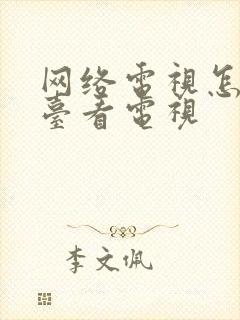 网络電視怎
臺看電視
李文佩